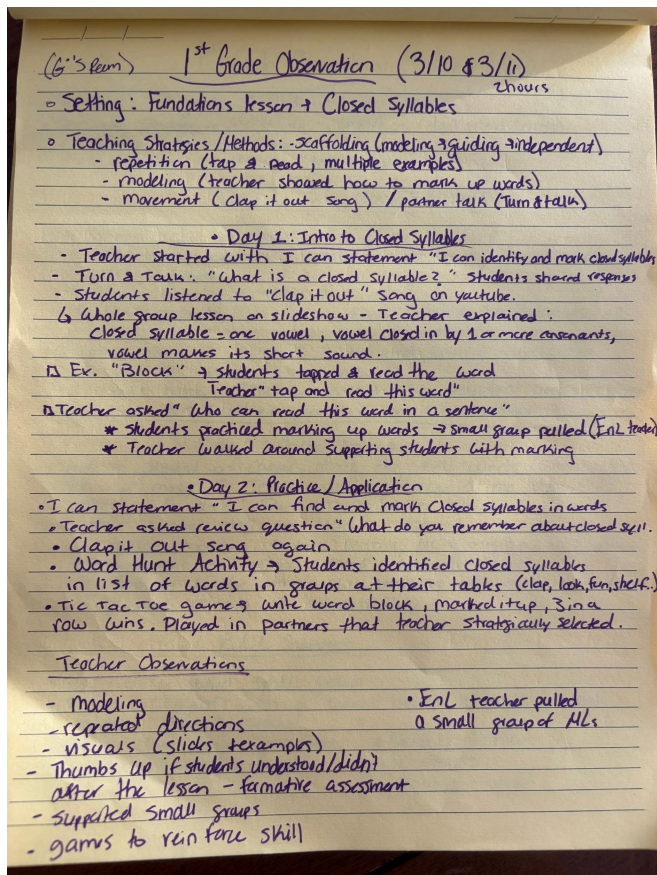 (G's Room) 1st Grade Observation (3/10 & 3/11)
2hours
◦ Setting: Fundations lesson + Closed Syllables
◦ Teaching Stratgies/Methods: -scaffolding (modeling → guiding → independent)
- repetition (tap & read, multiple examples)
- modeling (teacher showed how to mark up words)
- movement (clap it out song) / partner talk (Turn & talk)
• Day 1: Intro to Closed Syllables
- Teacher started with I can statement "I can identify and mark closed syllables
- Turn & Talk: "What is a closed syllable?" Students shared responses
- Students listened to "clap it out" song on youtube.
↳ Whole group lesson on slideshow - Teacher explained:
closed syllable = one vowel, vowel closed in by 1 or more consonants,
vowel makes its short sound.
□ Ex. "Block" → students tapped & read the word
Teacher "tap and read this word"
□ Teacher asked "Who can read this word in a sentence"
* Students practiced marking up words → small group pulled (EnL teacher)
* Teacher walked around supporting students with marking
• Day 2: Practice/Application
• I can statement "I can find and mark closed syllables in words
• Teacher asked review question "What do you remember about closed syll.
• Clap it out song again
• Word Hunt Activity → Students identified closed syllables
in list of words in groups at their tables (clap, look, fun, shelf.)
• Tic Tac Toe game → write word block, marked it up, 3 in a
row wins. Played in partners that teacher stratgically selected.
Teacher Observations
- modeling
- repeated directions
- visuals (slides & examples)
- Thumbs up if students understood/didn't
after the lesson - formative assessment
- supported small groups
- games to reinforce skill
• EnL teacher pulled
a small group of MLs